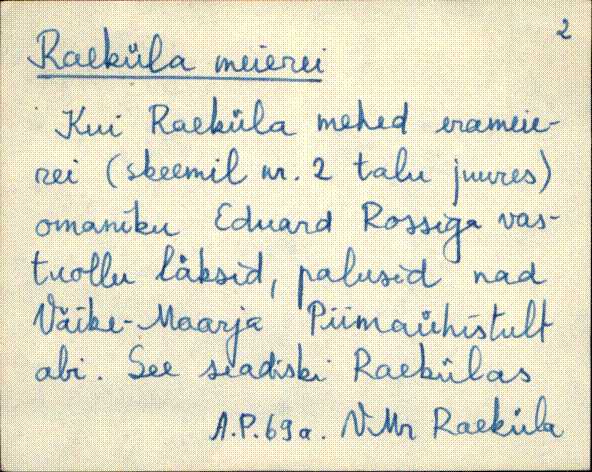 2
Raeküla meierei
Kui Raeküla mehed erameie-
rei (skeemil nr. 2 talu juures)
omaniku Eduard Rossiga vas-
tuollu läksid, palusid nad
Väike-Maarja Piimaühistult
abi. See seadiski Raekülas
A.P. 69 a. VMr Raeküla